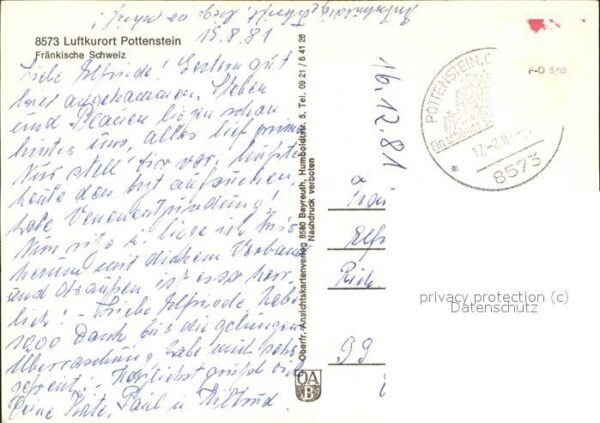 8573 Luftkurort Pottenstein
Fränkische Schweiz
15.8.81
Liebe Elfriede! Gestern gut
hier angekommen. Steben
und Plauen liegen schon
hinter uns, alles lief prima
Nur stell' Dir vor, mußte
heute den Arzt aufsuchen,
habe Venenentzündung!
Nun liege ich hier
herum mit dickem Verband
und draußen ist es so herr-
lich! - Liebe Elfriede, habe
1000 Dank für die gelungene
Überraschung, habe mich sehr
gefreut! - Herzlichst grüßt Dich
Deine Käte, Paul u.
Oberfr. Ansichtskartenverlag 8580 Bayreuth, Humboldtstr. 5, Tel. 09 21 / 6 41 26
Nachdruck verboten
OA
B
16.12.81
POTTENSTEIN,
8573
Elfr
99
privacy protection (c)
Datenschutz